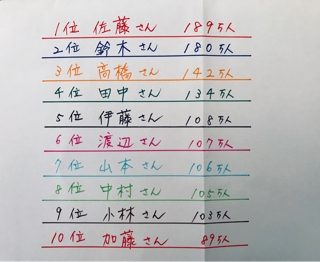 1位 佐藤さん 189万人
2位 鈴木さん 180万人
3位 高橋さん 142万人
4位 田中さん 134万人
5位 伊藤さん 108万人
6位 渡辺さん 107万人
7位 山本さん 106万人
8位 中村さん 105万人
9位 小林さん 103万人
10位 加藤さん 89万人